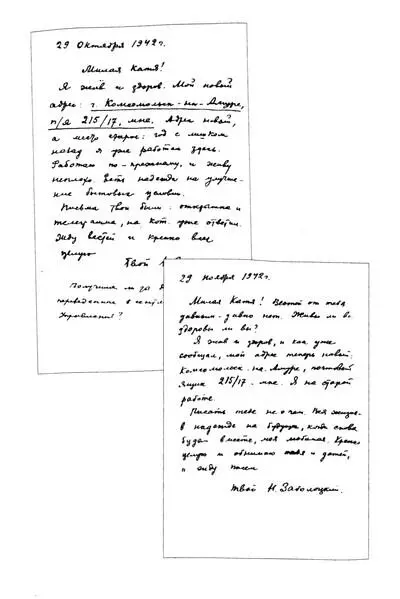 29 Октября 1942 г.
Милая Катя!
Я жив и здоров. Мой новый
адрес: г. Комсомольск-на-Амуре,
п/я 215/17, мне. Адрес новый,
а место старое: год с лишком
назад я уже работал здесь.
Работаю по-прежнему, и живу
неплохо. Есть надежда на улучше-
ние бытовых условий.
Письма твои были: открытка и
телеграмма, на кот. уже ответил.
Жду вестей и крепко всех
целую
Твой
Получила ли
переведенные в сент.
Управлением?
29 ноября 1942 г.
Милая Катя! Вестей от тебя
давным-давно нет. Живы ли вы,
здоровы ли вы?
Я жив и здоров, и как уже
сообщал, мой адрес теперь новый:
Комсомольск-на-Амуре, почтовый
ящик 215/17, мне. Я на старой
работе.
Писать тебе не о чем. Вся жизнь
в надежде на будущее, когда снова
будем вместе, моя любимая. Крепко
целую и обнимаю тебя и детей,
и жду писем
Твой Н. Заболоцкий.